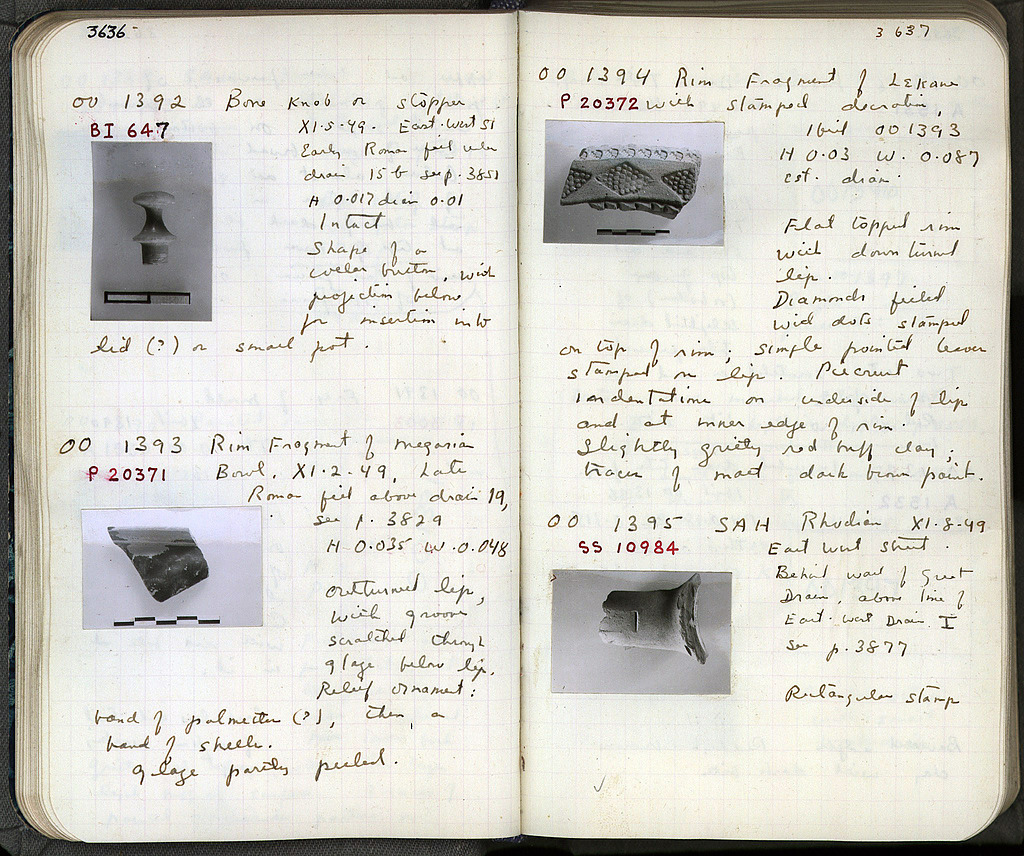 3636
OO 1392 Bone Knob or stopper
BI 647 XI-5-49. East-West St
Early Roman fill over
drain 15b see p. 3851
H 0.017 diam 0.01
Intact
Shape of a
collar button, with
projection below
for insertion into
lid (?) or small pot.
OO 1393 Rim Fragment of megarian
P 20371 Bowl. XI-2-49, Late
Roman fill above drain 19,
see p. 3829
H 0.035 W. 0.048
outturned lip,
with groove
scratched through
glaze below lip.
Relief ornament:
band of palmettes (?), then, a
band of shells.
glaze partly peeled.
3637
OO 1394 Rim Fragment of Lekane
P 20372 with stamped decoration,
Ibid OO1393
H 0.03 W. 0.087
est. diam.
Flat topped rim
with downturned
lip.
Diamonds filled
with dots stamped
on top of rim; simple pointed leaves
stamped on lip. Piecrust
indentations on underside of lip
and at inner edge of rim.
Slightly gritty red buff clay;
traces of matt dark brown paint.
OO 1395 SAH Rhodian XI-8-49
SS 10984 East West Street.
Behind wall of Great
Drain, above line of
East-West Drain I
see p. 3877
Rectangular stamp